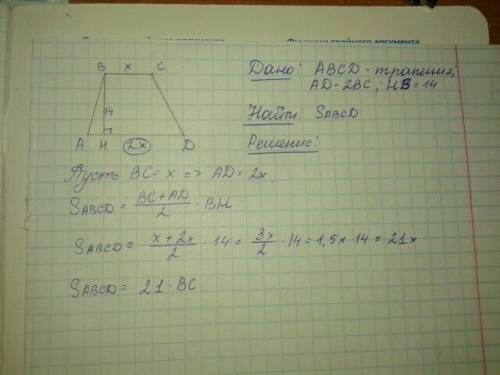 Функции двойного аргумента
B x C
14
A H 2x D
Дано: ABCD - трапеция,
AD = 2BC, HB = 14
Найти SABCD
Решение:
Пусть BC = x => AD = 2x.
SABCD = BC + AD / 2 · BH
SABCD = x + 2x / 2 · 14 = 3x / 2 · 14 = 1,5x · 14 = 21x
SABCD = 21 · BC